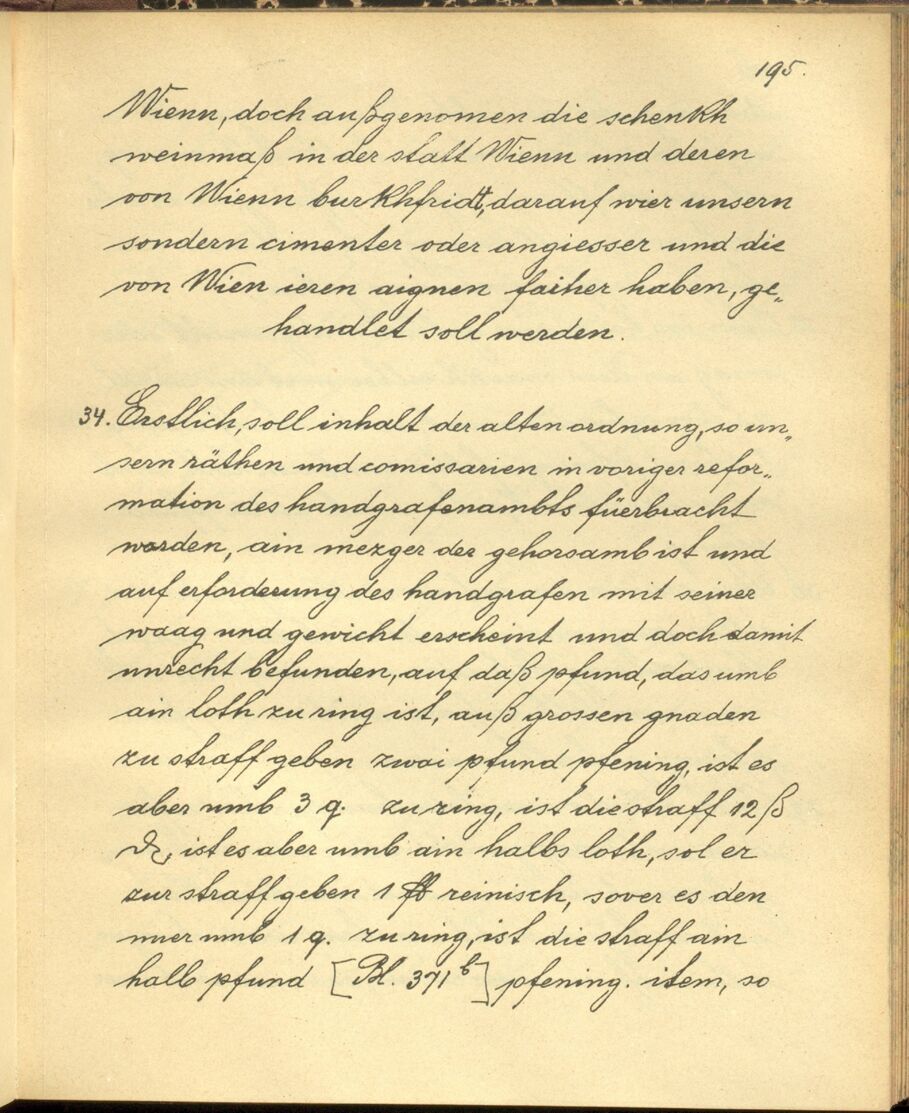 195.
Wienn, doch außgenomen die schenkh
weinmaß in der statt Wienn und deren
von Wienn burkhfridt, darauf wier unsern
sondern cimenter oder angiesser und die
von Wien ieren aignen faiher haben, ge„
handlet soll werden.
34. Erstlich, soll inhalt der alten ordnung, so un„
sern räthen und comissarien in voriger refor„
mation des handgrafenambts füerbracht
worden, ain mezger der gehorsamb ist und
auf erforderung des handgrafen mit seiner
waag und gewicht erscheint und doch damit
unrecht befunden, auf daß pfund, das umb
ain loth zu ring ist, auß grossen gnaden
zu straff geben zwai pfund pfening, ist es
aber umb 3 q. zu ring, ist die straff 12 ß
₰, ist es aber umb ain halbs loth, sol er
zur straff geben 1 reinisch, sover es den
nuer umb 1 q. zu ring, ist die straff ain
halb pfund [Bl. 371b] pfening. item, so